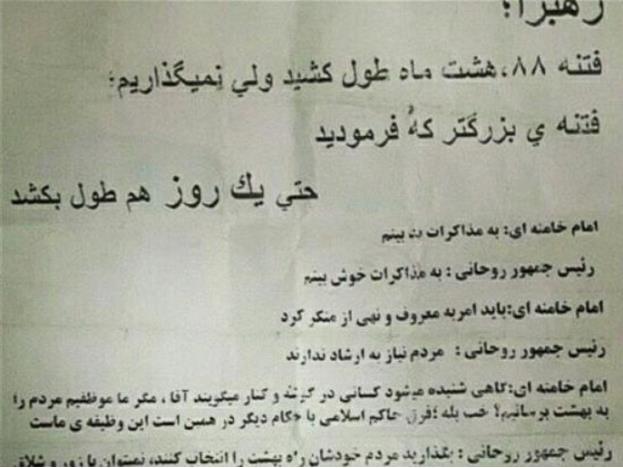 رهبرا؛
فتنه ۸۸، هشت ماه طول کشید ولي نميگذاريم؛
فتنه ي بزرگتر که فرموديد
حتي يك روز هم طول بكشد
امام خامنه ای: به مذاکرات بینم
رئیس جمهور روحانی : به مذاکرات خوش بینم
امام خامنه ای:باید امربه معروف و نهی از منکر کرد
رئیس جمهور روحانی : مردم نیاز به ارشاد ندارند
امام خامنه ای:گاهی شنیده میشود کسانی در گوشه و کنار میگویند آقا ، مگر ما موظفیم مردم را
به بهشت برسانیم؟ خب بله ؛فرق حاکم اسلامی با حکام دیگر در همین است این وظیفه ی ماست
رئیس جمهور روحانی : بگذارید مردم خودشان راه بهشت را انتخاب کنند، نمیتوان با زور و شلاق